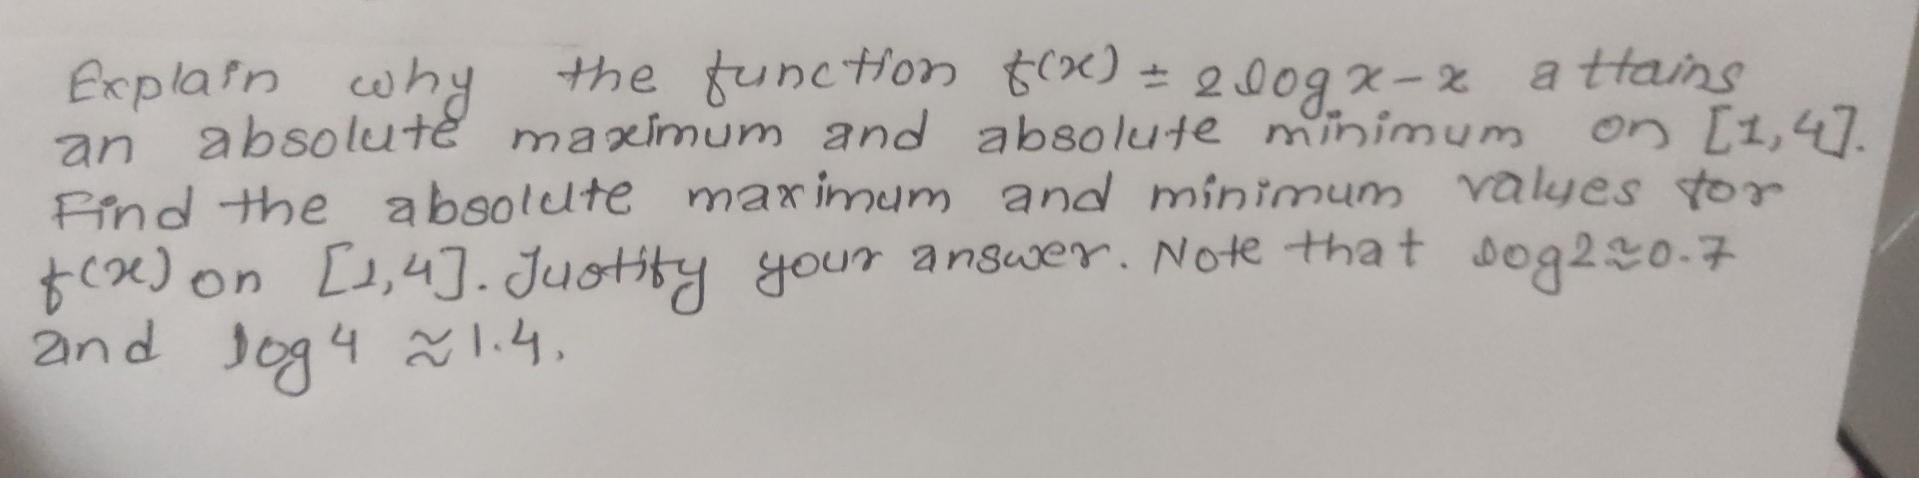 Explain why the function f(x) = 2 log x - x attains
an absolute maximum and absolute minimum on [1,4].
Find the absolute maximum and minimum values for
f(x) on [1,4]. Justify your answer. Note that log2≈0.7
and log 4 ≈ 1.4.